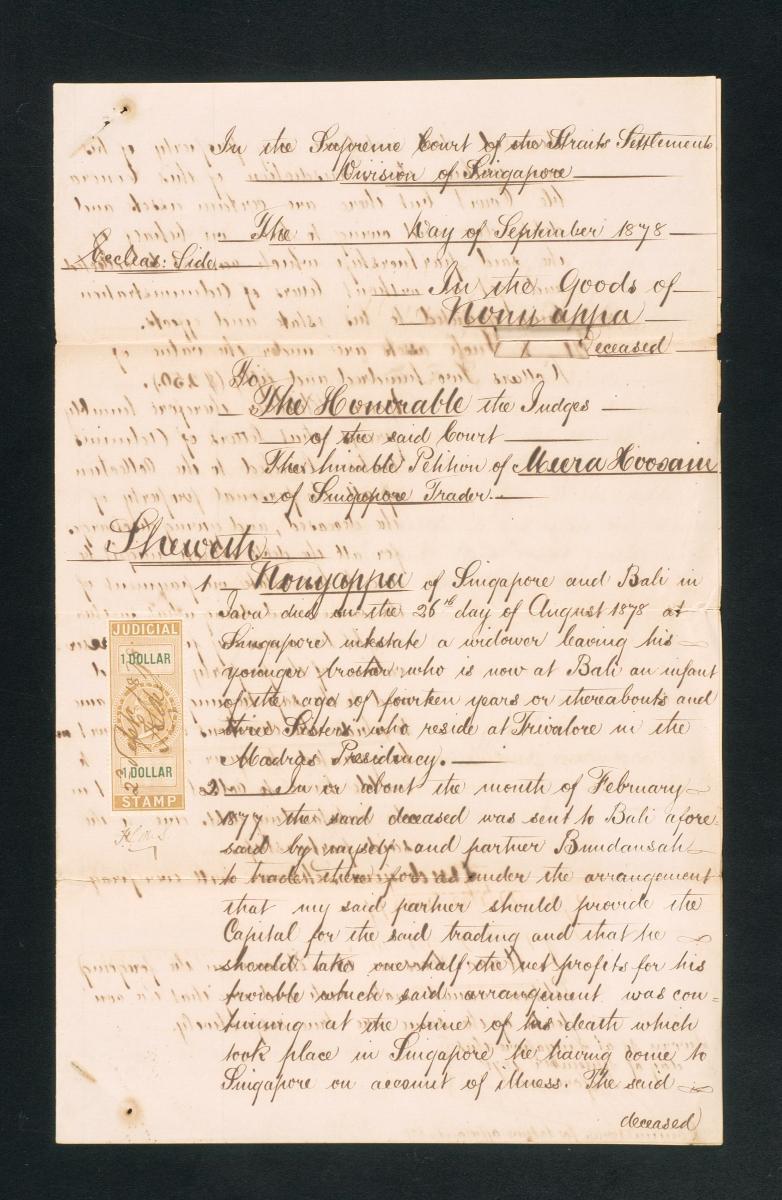 In the Supreme Court of the Straits Settlements
Division of Singapore
The Day of September 1878
Eccleas: Side
In the Goods of
Nonyappa
Deceased
To
The Honorable the Judges
of the said Court
The humble Petition of Meera Hoosain
of Singapore Trader.
Sheweth
1 Nonyappa of Singapore and Bali in
Java died on the 26th day of August 1878 at
Singapore intestate a widower leaving his
younger brother who is now at Bali an infant
of the age of fourteen years or thereabouts and
three Sisters who reside at Trivalore in the
Madras Presidency.
JUDICIAL
1 DOLLAR
1 DOLLAR
STAMP
2 In or about the month of February
1877 the said deceased was sent to Bali afore-
said by myself and partner Bundansah
to trade there for us under the arrangement
that my said partner should provide the
Capital for the said trading and that he
should take one half the net profits for his
trouble which said arrangement was con-
tinuing at the time of his death which
took place in Singapore he having come to
Singapore on account of illness. The said
deceased